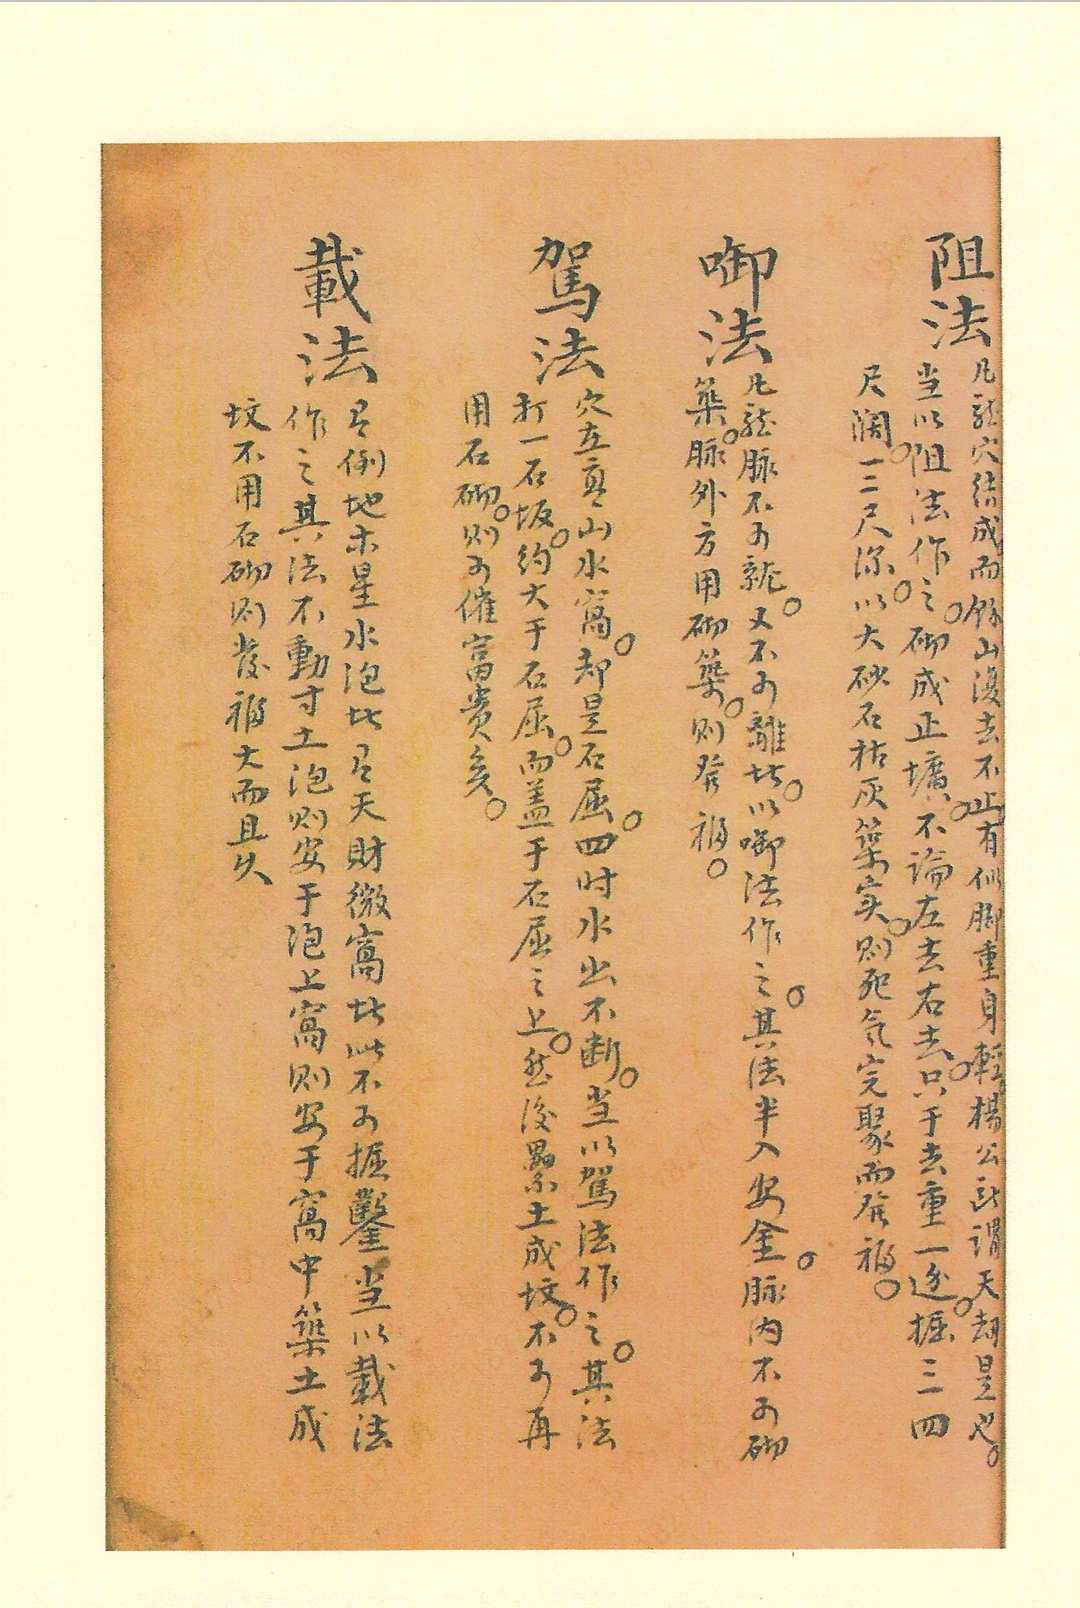 阻法
凡龍穴结成而馀山復去不止有似脚重身輕楊公所謂天劫是也。
当以阻法作之。砌成正壙。不論左去右去。只于去重一边。掘三四
尺濶。一二尺深。以大砂石枯灰築实。则死气完聚而發福。
啣法
凡龍脉不可就。又不可離者。以啣法作之。其法半入安金。脉内不可砌
築。脉外方用砌築。则發福。
駕法
穴在高山水窩。却是石屈。四时水出不断。当以駕法作之。其法
打一石坂。约大于石屈。而盖于石屈之上。然後壘土成坟。不可再
用石砌。则可催富貴矣。
載法
有倒地木星水泡者有天財微窩者此不可掘鑿当以載法
作之其法不動寸土泡则安于泡上窩则安于窩中築土成
坟不用石砌则發福大而且久